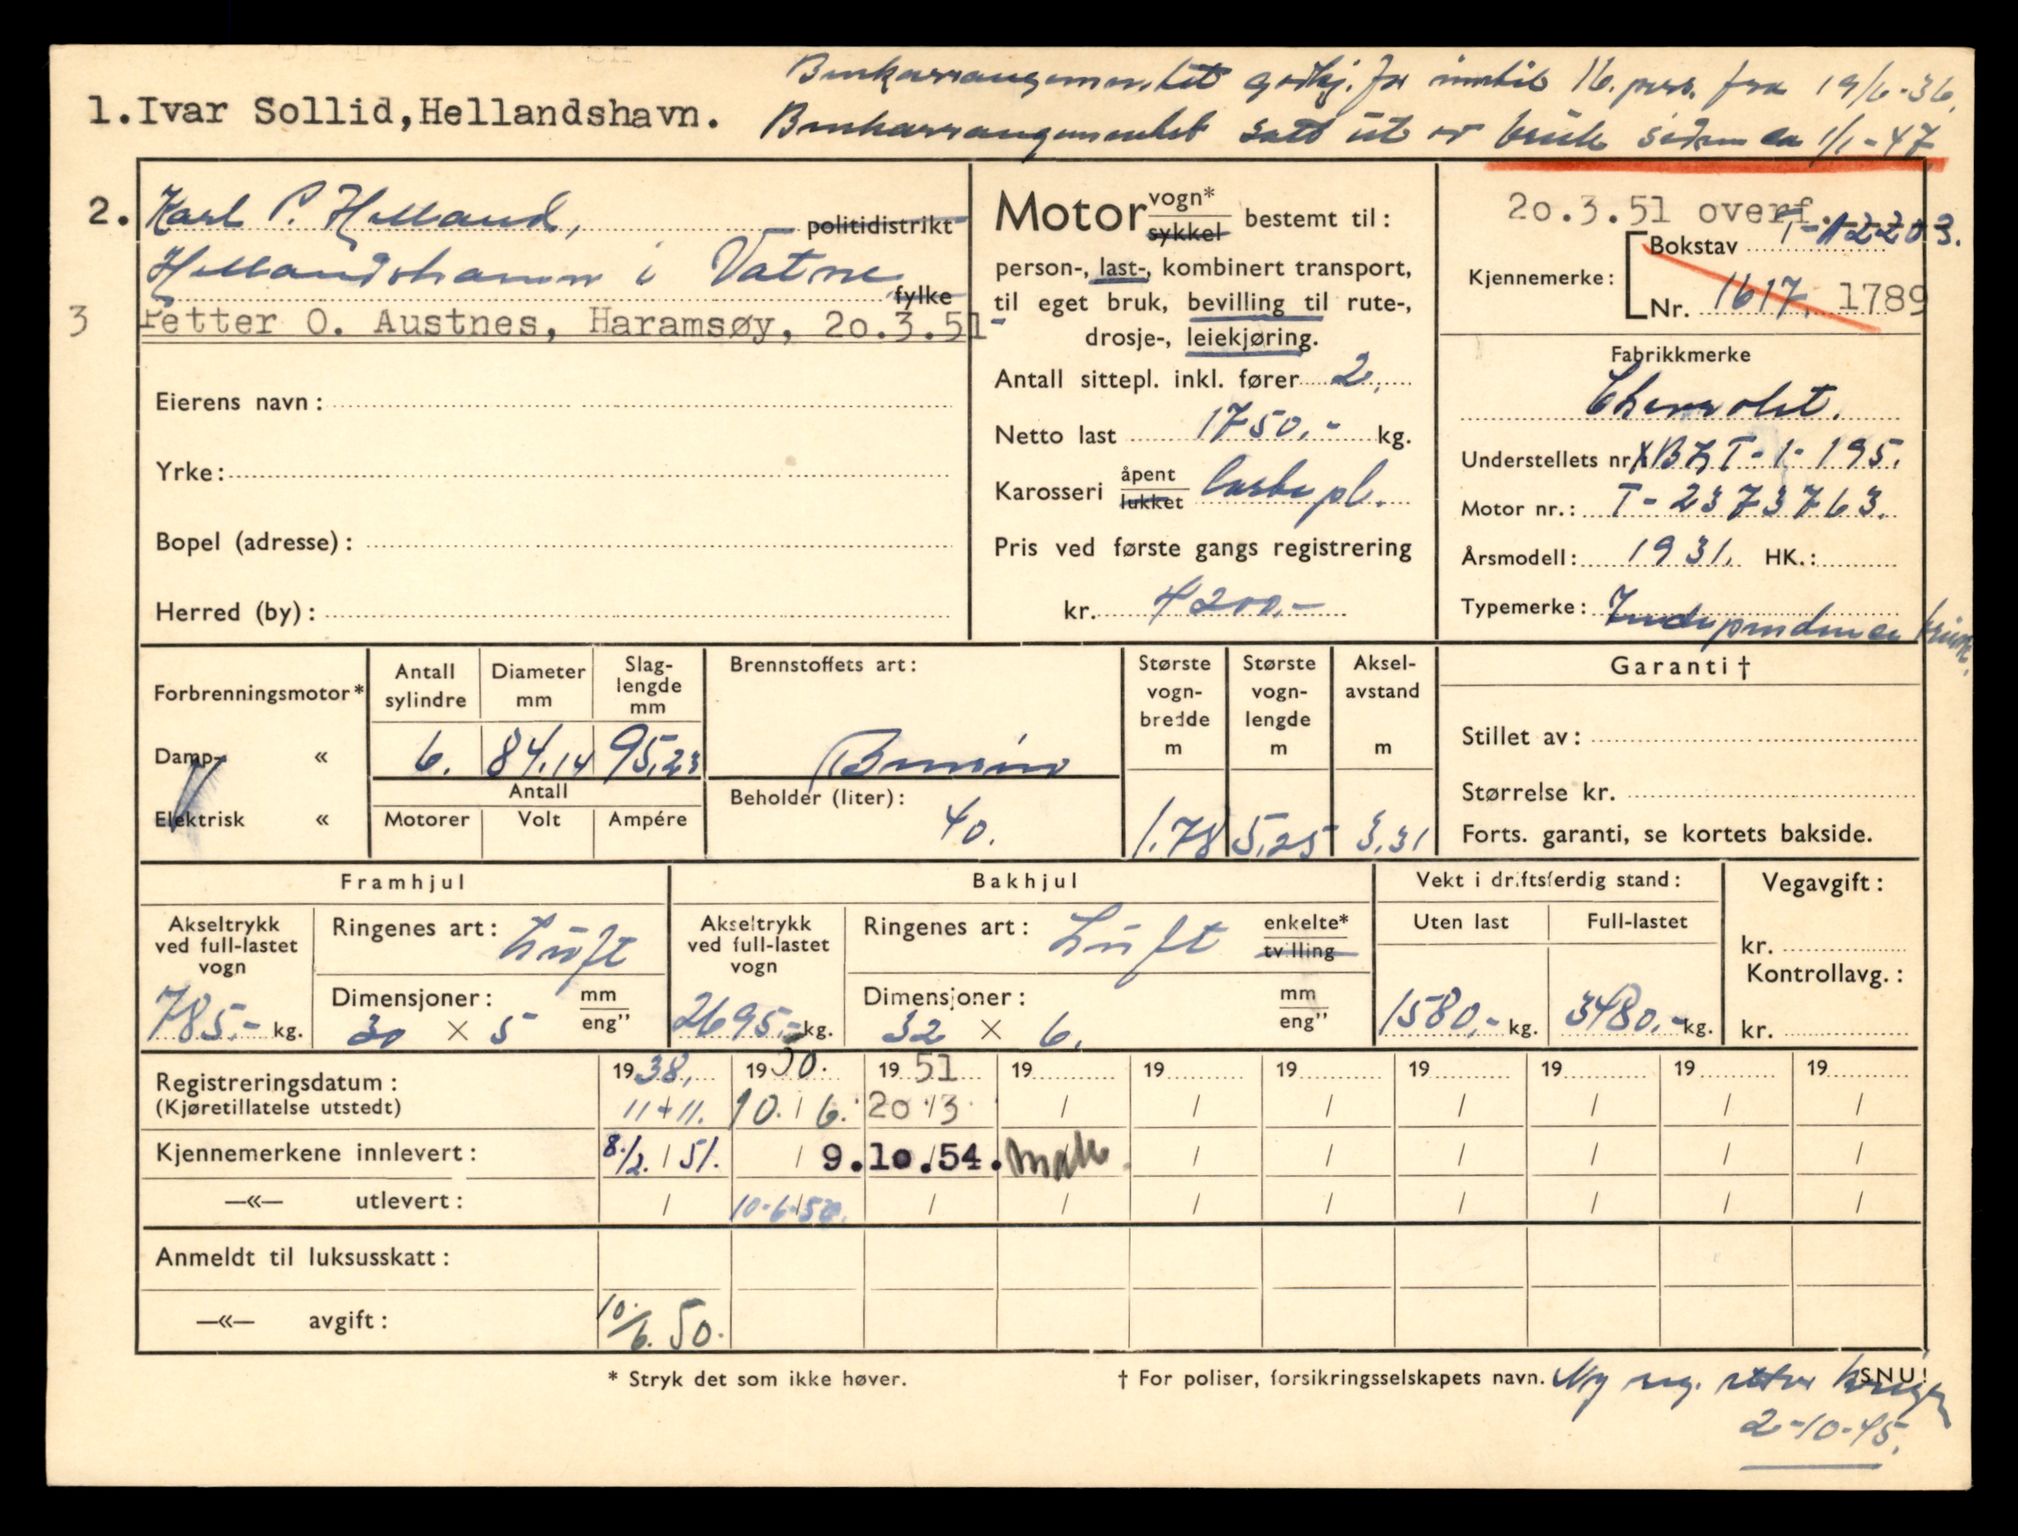 Benkarrangementet godkj. for inntil 16. pers. fra 19/6-36.
1. Ivar Sollid, Hellandshavn.
Benkarrangementet satt ut av bruk siden ca 1/1-47
2. Karl P. Helland, politidistrikt
Hellandshamn i Vatne fylke
3 Petter O. Austnes, Haramsøy, 20.3.51-
Eierens navn:
Yrke:
Bopel (adresse):
Herred (by):
Motor vogn* sykkel bestemt til:
person-, last-, kombinert transport,
til eget bruk, bevilling til rute-,
drosje-, leiekjøring.
Antall sittepl. inkl. fører 2.
Netto last 1750.- kg.
Karosseri åpent lukket lastepl.
Pris ved første gangs registrering
kr. 4200.-
20.3.51 overf.
Kjennemerke: Bokstav T-12203.
Nr. 1617. 1789
Fabrikkmerke
Chevrolet.
Understellets nr XBZT-1-195.
Motor nr.: T-2373763.
Årsmodell: 1931. HK.:
Typemerke: Independence
Forbrenningsmotor*
Damp- «
Elektrisk «
Antall sylindre
Diameter mm
Slag-lengde mm
6. 84.14 95.23
Antall
Motorer Volt Ampére
Brennstoffets art:
Bensin
Beholder (liter):
40.
Største vogn-bredde m
1.78
Største vogn-lengde m
5,25
Aksel-avstand m
3,31
Garanti †
Stillet av:
Størrelse kr.
Forts. garanti, se kortets bakside.
Framhjul
Akseltrykk ved full-lastet vogn
785.- kg.
Ringenes art: Luft
Dimensjoner: mm eng"
30 × 5
Bakhjul
Akseltrykk ved full-lastet vogn
2695.- kg.
Ringenes art: Luft enkelte* tvilling
Dimensjoner: mm eng"
32 × 6.
Vekt i driftsferdig stand:
Uten last Full-lastet
1580.- kg. 3480.- kg.
Vegavgift:
kr.
Kontrollavg.:
kr.
Registreringsdatum: 1938. 1950. 1951 19 19 19 19 19 19 19
(Kjøretillatelse utstedt) 11/11. 10./6. 20/3 / / / / / / /
Kjennemerkene innlevert: 8./2. / 51. / 9.10.54. / / / / / /
—«— utlevert: / 10-6-50. / / / / / / / /
Anmeldt til luksusskatt:
—«— avgift: 10./6. 50.
* Stryk det som ikke høver.
† For poliser, forsikringsselskapets navn. SNU!
Ny reg. etter krigen
2-10-45.